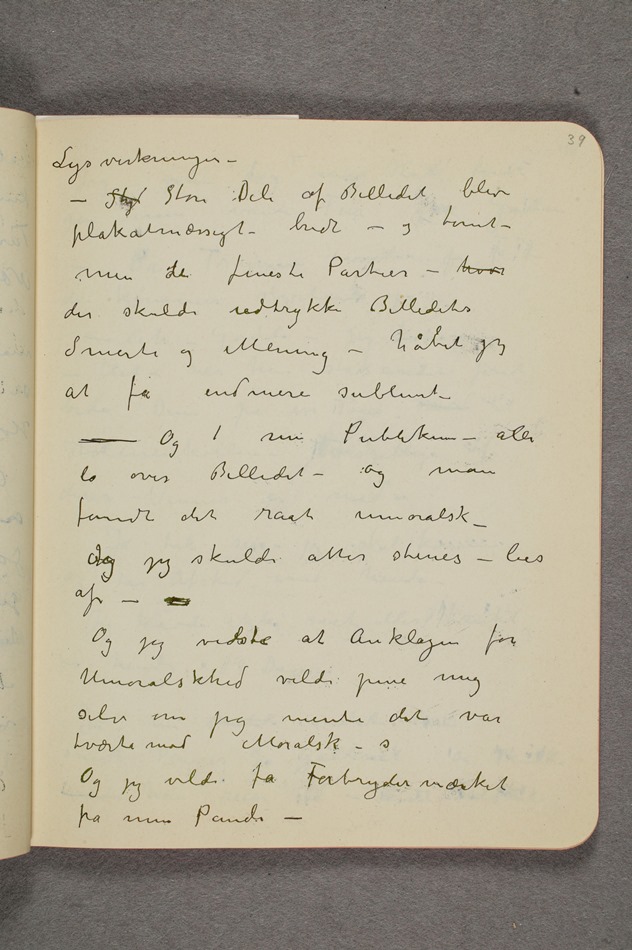 39
Lysvirkninger –
– Store Dele af Billedet blev
plakatmæssigt – bredt – og tomt –
men de fineste Partier – hvor
der skulde udtrykke Billedets
Smerte og Mening – håbet jeg
at få endmere sublimt –
Og I mit Publikum – alle
lo over Billedet – og man
fandt det raat umoralsk –
Og jeg skulde atter stenes – lees
af –
Og jeg vidste at Anklagen for
Umoralskhed vilde pine mig
selv om jeg mente det var
tværtemod Moralsk – s
Og jeg vilde få Forbrydermærket
på min Pande –